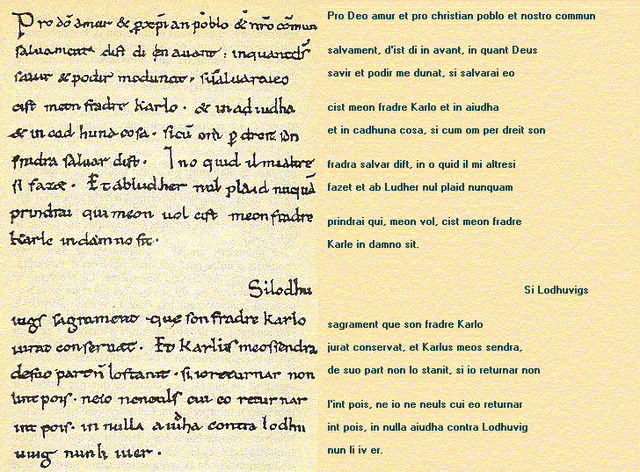 Pro dō amur & p xp̄ian poblo & nr̄o cōmun
saluament dist di en auant. inquantds
sauir & podir medunat. si saluaraieo
cist meon fradre karlo. & in adiudha
& in cad huna cosa. sicū om p dreit son
fradra saluar dist. Ino quid il mialtre
si fazet. Et abludher nul plaid nuquā
prindrai qui meon uol cist meon fradre
karle indamno sit.
Silodhu
uigs sagrament que son fradre karlo
iurat conseruat. Et Karlus meossendra
desuo partn̄ lostanit. si ioreturnar non
lint pois. neio neneuls cui eo returnar
int pois. in nulla aiudha contra lodhu
uuig nunli iuer.
Pro Deo amur et pro christian poblo et nostro commun
salvament, d'ist di in avant, in quant Deus
savir et podir me dunat, si salvarai eo
cist meon fradre Karlo et in aiudha
et in cadhuna cosa, si cum om per dreit son
fradra salvar dift, in o quid il mi altresi
fazet et ab Ludher nul plaid nunquam
prindrai qui, meon vol, cist meon fradre
Karle in damno sit.
Si Lodhuvigs
sagrament que son fradre Karlo
jurat conservat, et Karlus meos sendra,
de suo part non lo stanit, si io returnar non
l'int pois, ne io ne neuls cui eo returnar
int pois, in nulla aiudha contra Lodhuvig
nun li iv er.